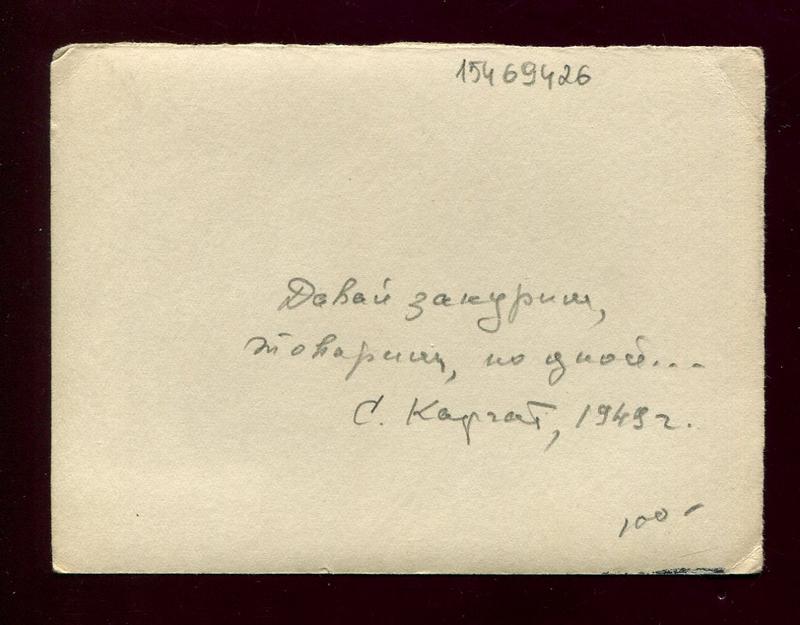 15469426
Давай закурим,
товарищ, по одной...
С. Каргат, 1949 г.
100 -